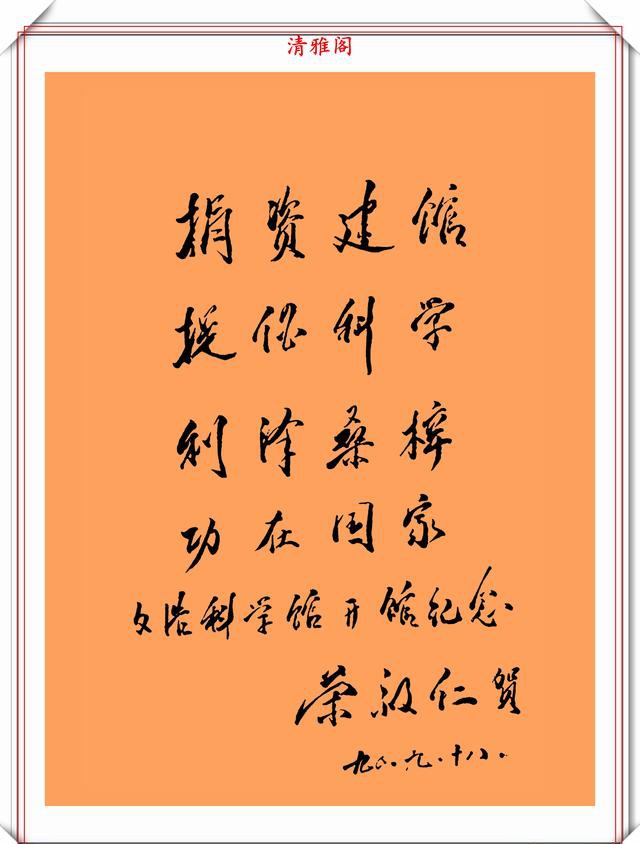 清雅阁
捐资建馆
提倡科学
利泽桑梓
功在国家
文浩科学馆开馆纪念
荣毅仁贺
九〇.九.十八.